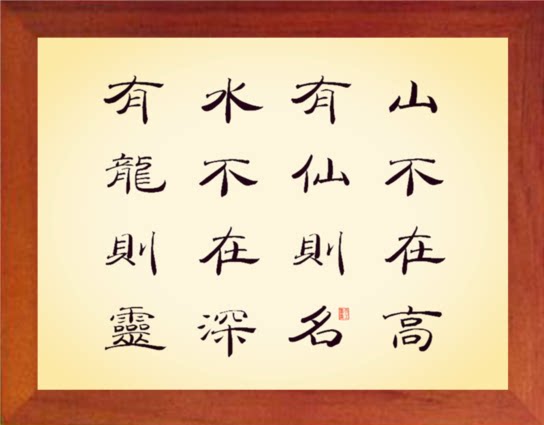 山不在高
有仙則名
水不在深
有龍則靈